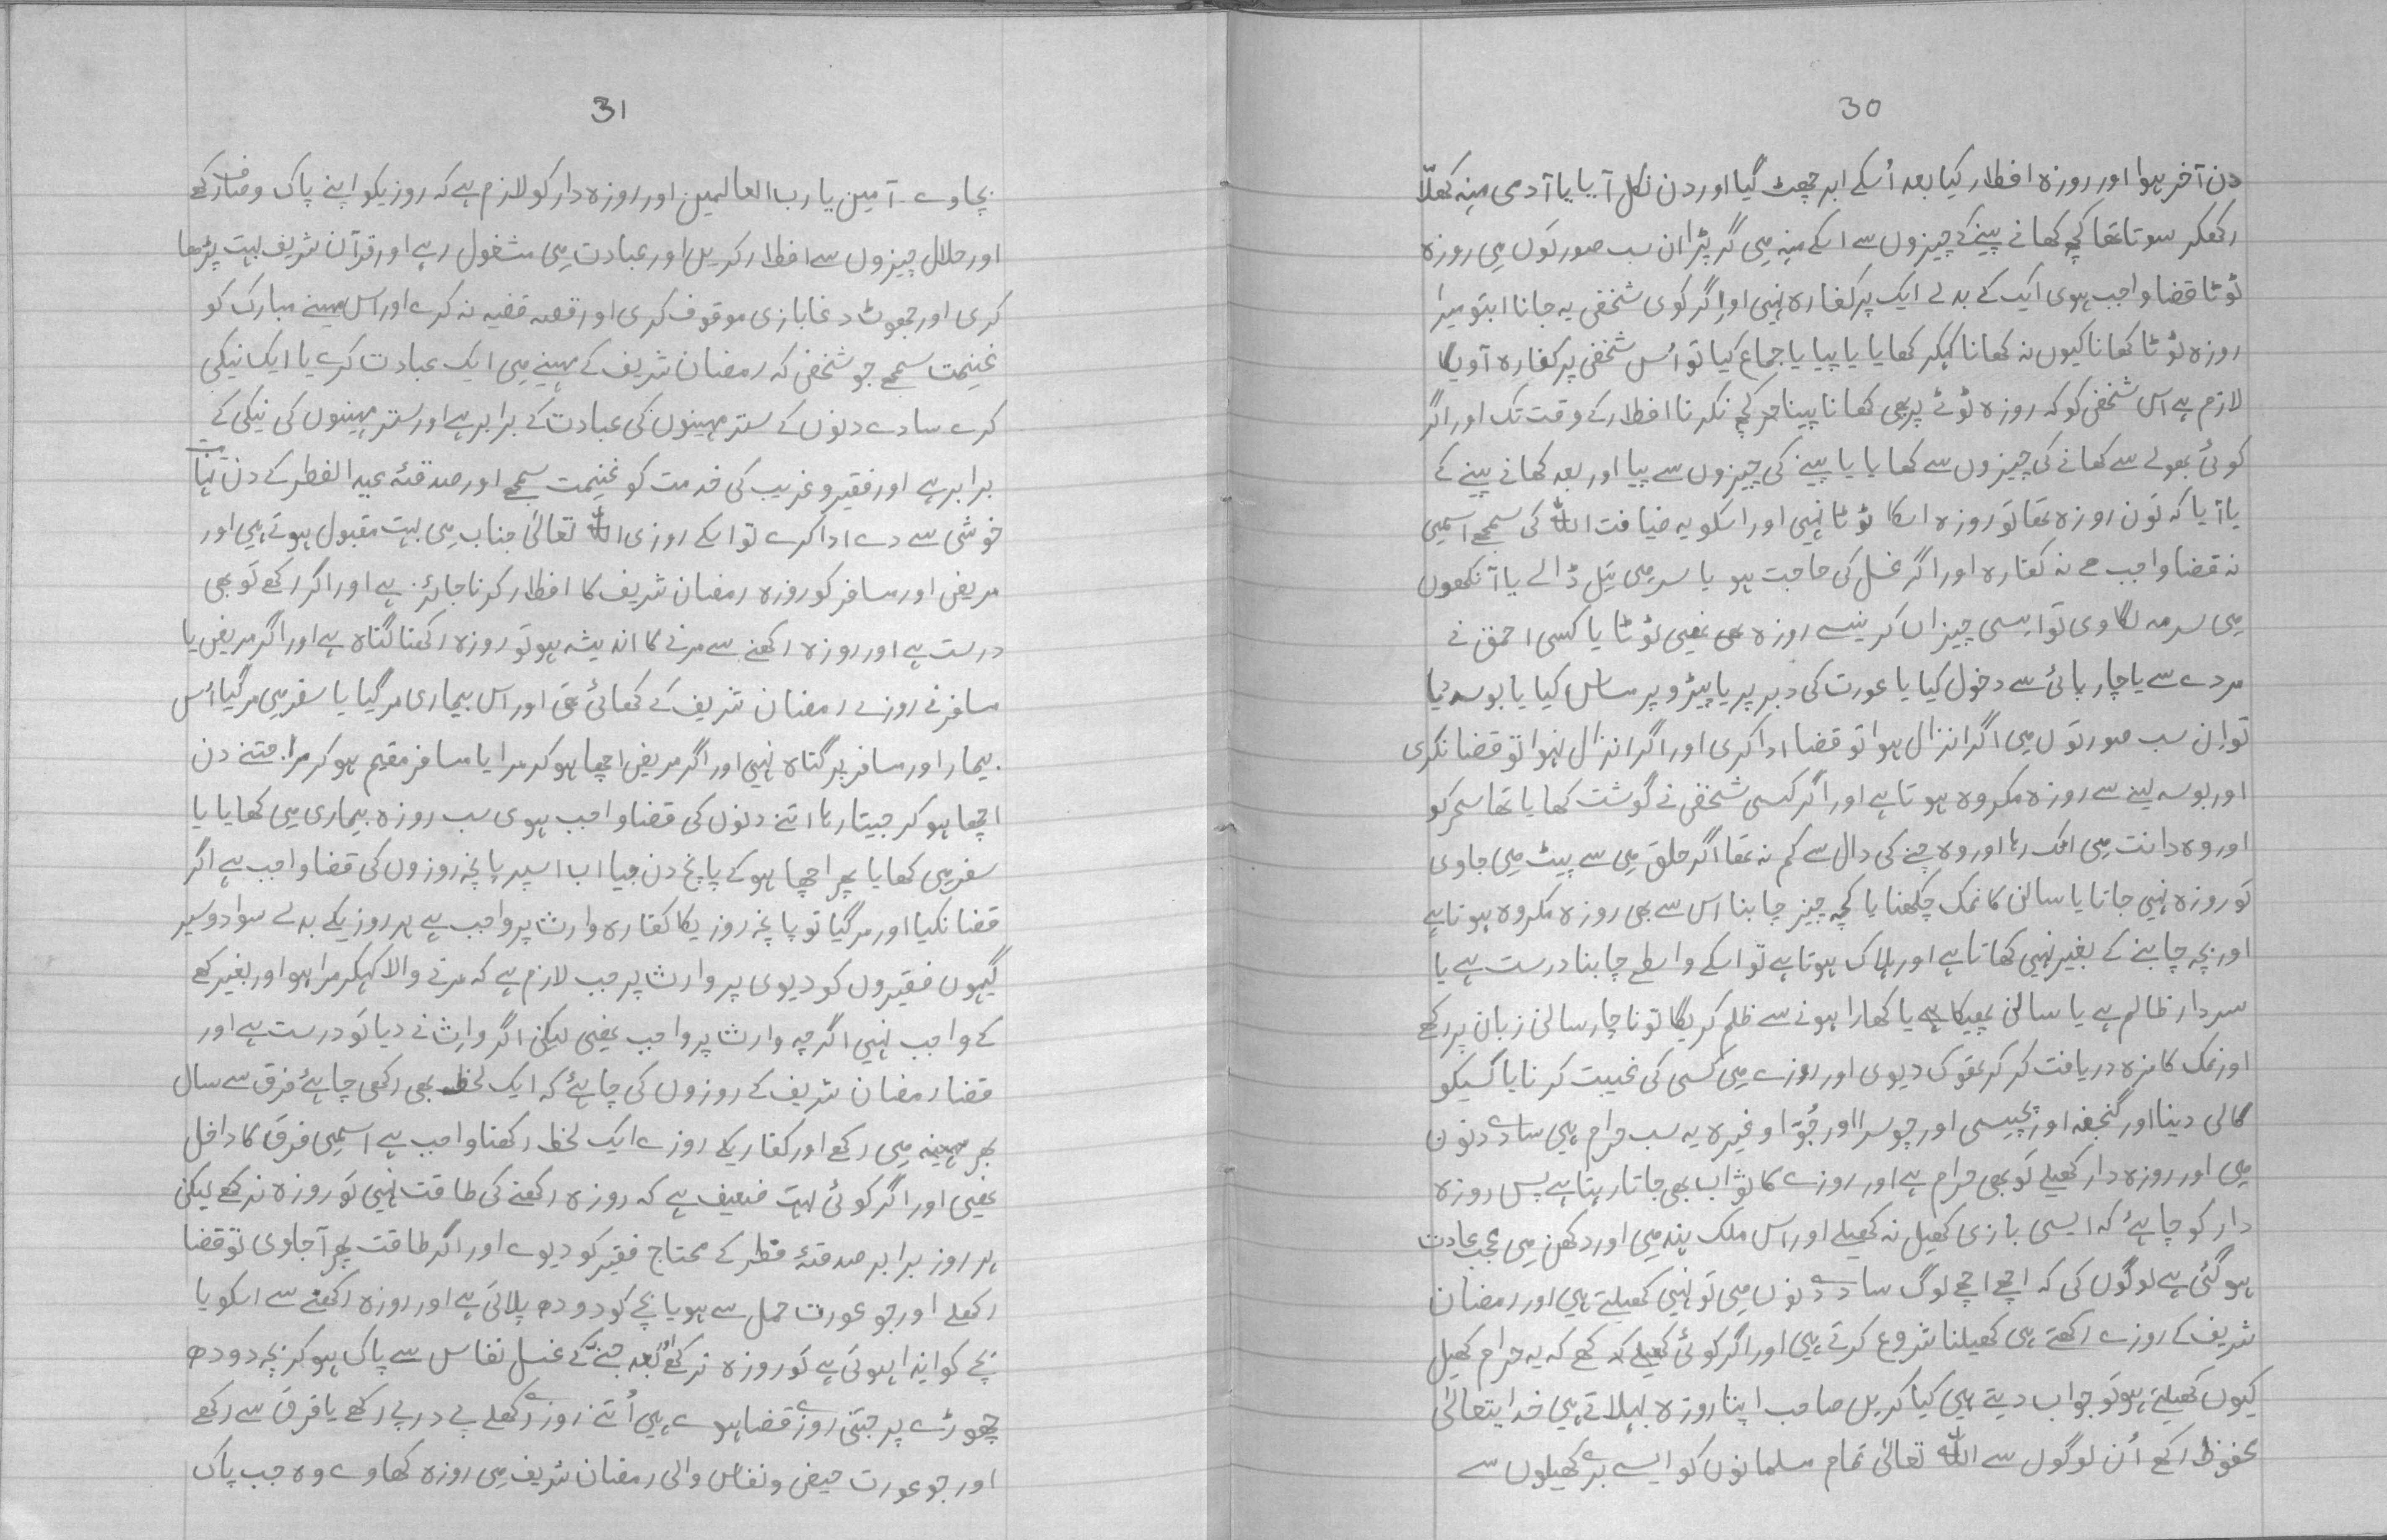 30
دن آخر ہوا اور روزہ افطار کیا بعد اُسکے ابر چھٹ گیا اور دن نکل آیا یا آدمی مُنہ کھلّا
رکھکر سوتا تھا کچھ کھانے پینے کے چیزوں سے اسکے مُنہ میں گر پڑا ان سب صورتوں میں روزہ
ٹوٹا قضا واجب ہوی ایک کے بدلے ایک پر کفارہ نہیں اور اگر کوی شخص یہ جانا ابتو میرا
روزہ ٹوٹا کھانا کیوں نہ کھانا کہکر کھایا یا پیا یا جماع کیا تو اُس شخص پر کفارہ آویگا
لازم ہے اس شخص کو کہ روزہ ٹوٹے پر بھی کھانا پینا کچھ نکرنا افطار کے وقت تک اور اگر
کوئی بھولے سے کھانے کی چیزوں سے کھایا یا پینے کی چیزوں سے پیا اور بعد کھانے پینے کے
یاد آیا کہ توں روزہ تھا تو روزہ اسکا ٹوٹا نہیں اور اسکو یہ ضیافت اللہ کی سمجھے اسمیں
نہ قضا واجب ہے نہ کفارہ اور اگر غسل کی حاجت ہو یا سر میں تیل ڈالے یا آنکھوں
میں سرمہ لگاوی تو ایسی چیزاں کرنیسے روزہ بھی نہیں ٹوٹتا یا کسی احمق نے
مردے سے یا چارپائی سے دخول کیا یا عورت کی دبر پر یا پیڑو پر مساس کیا یا بوسہ لیا
تو اِن سب صورتوں میں اگر انزال ہوا تو قضا ادا کری اور اگر انزال نہوا تو قضا نکری
اور بوسہ لینے سے روزہ مکروہ ہوتا ہے اور اگر کسی شخص نے گوشت کھایا تھا سحر کو
اور وہ دانت میں اٹک رہا اور وہ چنے کی دال سے کم نہ تھا اگر حلق میں سے پیٹ میں جاوی
تو روزہ نہیں جاتا یا سالن کا نمک چکھنا یا کچھ چیز چابنا اس سے بھی روزہ مکروہ ہوتا ہے
اور بچہ چابنے کے بغیر نہیں کھاتا ہے اور ہلاک ہوتا ہے تو اسکے واسطے چابنا درست ہے یا
سردار ظالم ہے یا سالن پھیکا ہے یا کھارا ہونے سے ظلم کریگا تو ناچار سالن زبان پر رکھے
اور نمک کا مزہ دریافت کر کر تھوک دیوی اور روزے میں کسی کی غیبت کرنا یا کسیکو
گالی دینا اور گنجفہ اور پچیسی اور چوسرا اور جُوّا وغیرہ یہ سب حرام ہیں سارے دنوں
میں اور روزہ دار کھیلے تو بھی حرام ہے اور روزے کا ثواب بھی جاتا رہتا ہے پس روزہ
دار کو چاہئے کہ ایسی بازی کھیل نہ کھیلے اور اس ملک ہند میں اور دکھن میں عجب عادت
ہو گئی ہے لوگوں کی کہ اچھے اچھے لوگ سارے دنوں میں تو نہیں کھیلتے ہیں اور رمضان
شریف کے روزے رکھتے ہی کھیلنا شروع کرتے ہیں اور اگر کوئی کھیلے کہ یہ حرام کھیل
کیوں کھیلتے ہو تو جواب دیتے ہیں کیا کریں صاحب اپنا روزہ بہلاتے ہیں خدایتعالیٰ
محفوظ رکھے اُن لوگوں سے اللہ تعالیٰ تمام مسلمانوں کو ایسے بُرے کھیلوں سے
31
بچاوے۔ آمین یا رب العالمین اور روزہ دار کو لازم ہے کہ روزیکو اپنے پاک و صاف رکھے
اور حلال چیزوں سے افطار کریں اور عبادت میں مشغول رہے اور قرآن شریف بہت پڑھا
کری اور جھوٹ دغا بازی موقوف کری اور قصہ قضیہ نہ کرے اور اس مہینے مبارک کو
غنیمت سمجھے جو شخص کہ رمضان شریف کے مہینے میں ایک عبادت کرے یا ایک نیکی
کرے سارے دنوں کے ستر مہینوں کی عبادت کے برابر ہے اور ستر مہینوں کی نیکی کے
برابر ہے اور فقیر و غریب کی خدمت کو غنیمت سمجھے اور صدقۂ عید الفطر کے دن نہایت
خوشی سے دے ادا کرے تو اسکے روزی اللہ تعالیٰ جناب میں بہت مقبول ہوتے ہیں اور
مریض اور مسافر کو روزہ رمضان شریف کا افطار کرنا جائز ہے اور اگر رکھے تو بھی
درست ہے اور روزہ رکھنے سے مرنے کا اندیشہ ہو تو روزہ رکھنا گناہ ہے اور اگر مریض یا
مسافر نے روزے رمضان شریف کے کھائی تھی اور اس بیماری مر گیا یا سفر میں مر گیا اُس
بیمار اور مسافر پر گناہ نہیں اور اگر مریض اچھا ہو کر مرا یا مسافر مقیم ہو کر مرا۔ جتنے دن
اچھا ہو کر جیتا رہا اتنے دنوں کی قضا واجب ہوی سب روزہ بیماری میں کھایا یا
سفر میں کھایا پھر اچھا ہو کے پانچ دن جیا اب اسپر پانچہ روزوں کی قضا واجب ہے اگر
قضا نکیا اور مر گیا تو پانچہ روزیکا کفارہ وارث پر واجب ہے ہر روزیکے بدلے سوا دو سیر
گیہوں فقیروں کو دیوی پر وارث پر جب لازم ہے کہ مرنے والا کہکر مرا ہو اور بغیر کہے
کے واجب نہیں اگرچہ وارث پر واجب نہیں لیکن اگر وارث نے دیا تو درست ہے اور
قضا رمضان شریف کے روزوں کی چاہئے کہ ایک لخط بھی رکھی چاہئے فرق سے سال
بھر مہینہ میں رکھے اور کفاریکے روزے ایک لخط رکھنا واجب ہے اسمیں فرق کا داخل
نہیں اور اگر کوئی بہت ضعیف ہے کہ روزہ رکھنے کی طاقت نہیں تو روزہ نرکھے لیکن
ہر روز برابر صدقۂ فطر کے محتاج فقیر کو دیوے اور اگر طاقت پھر آ جاوی تو قضا
رکھلے اور جو عورت حمل سے ہو یا بچے کو دودھ پلاتی ہے اور روزہ رکھنے سے اسکو یا
بچے کو ایذا ہوتی ہے تو روزہ نرکھے اور بعد جننے کے غسل نفاس سے پاک ہو کر بچہ دودھ
چھوڑے پر جتنی روزے قضا ہوے ہیں اُتنے روزے رکھلے پے درپے رکھے یا فرق سے رکھے
اور جو عورت حیض و نفاس والی رمضان شریف میں روزہ کھاوے وہ جب پاک